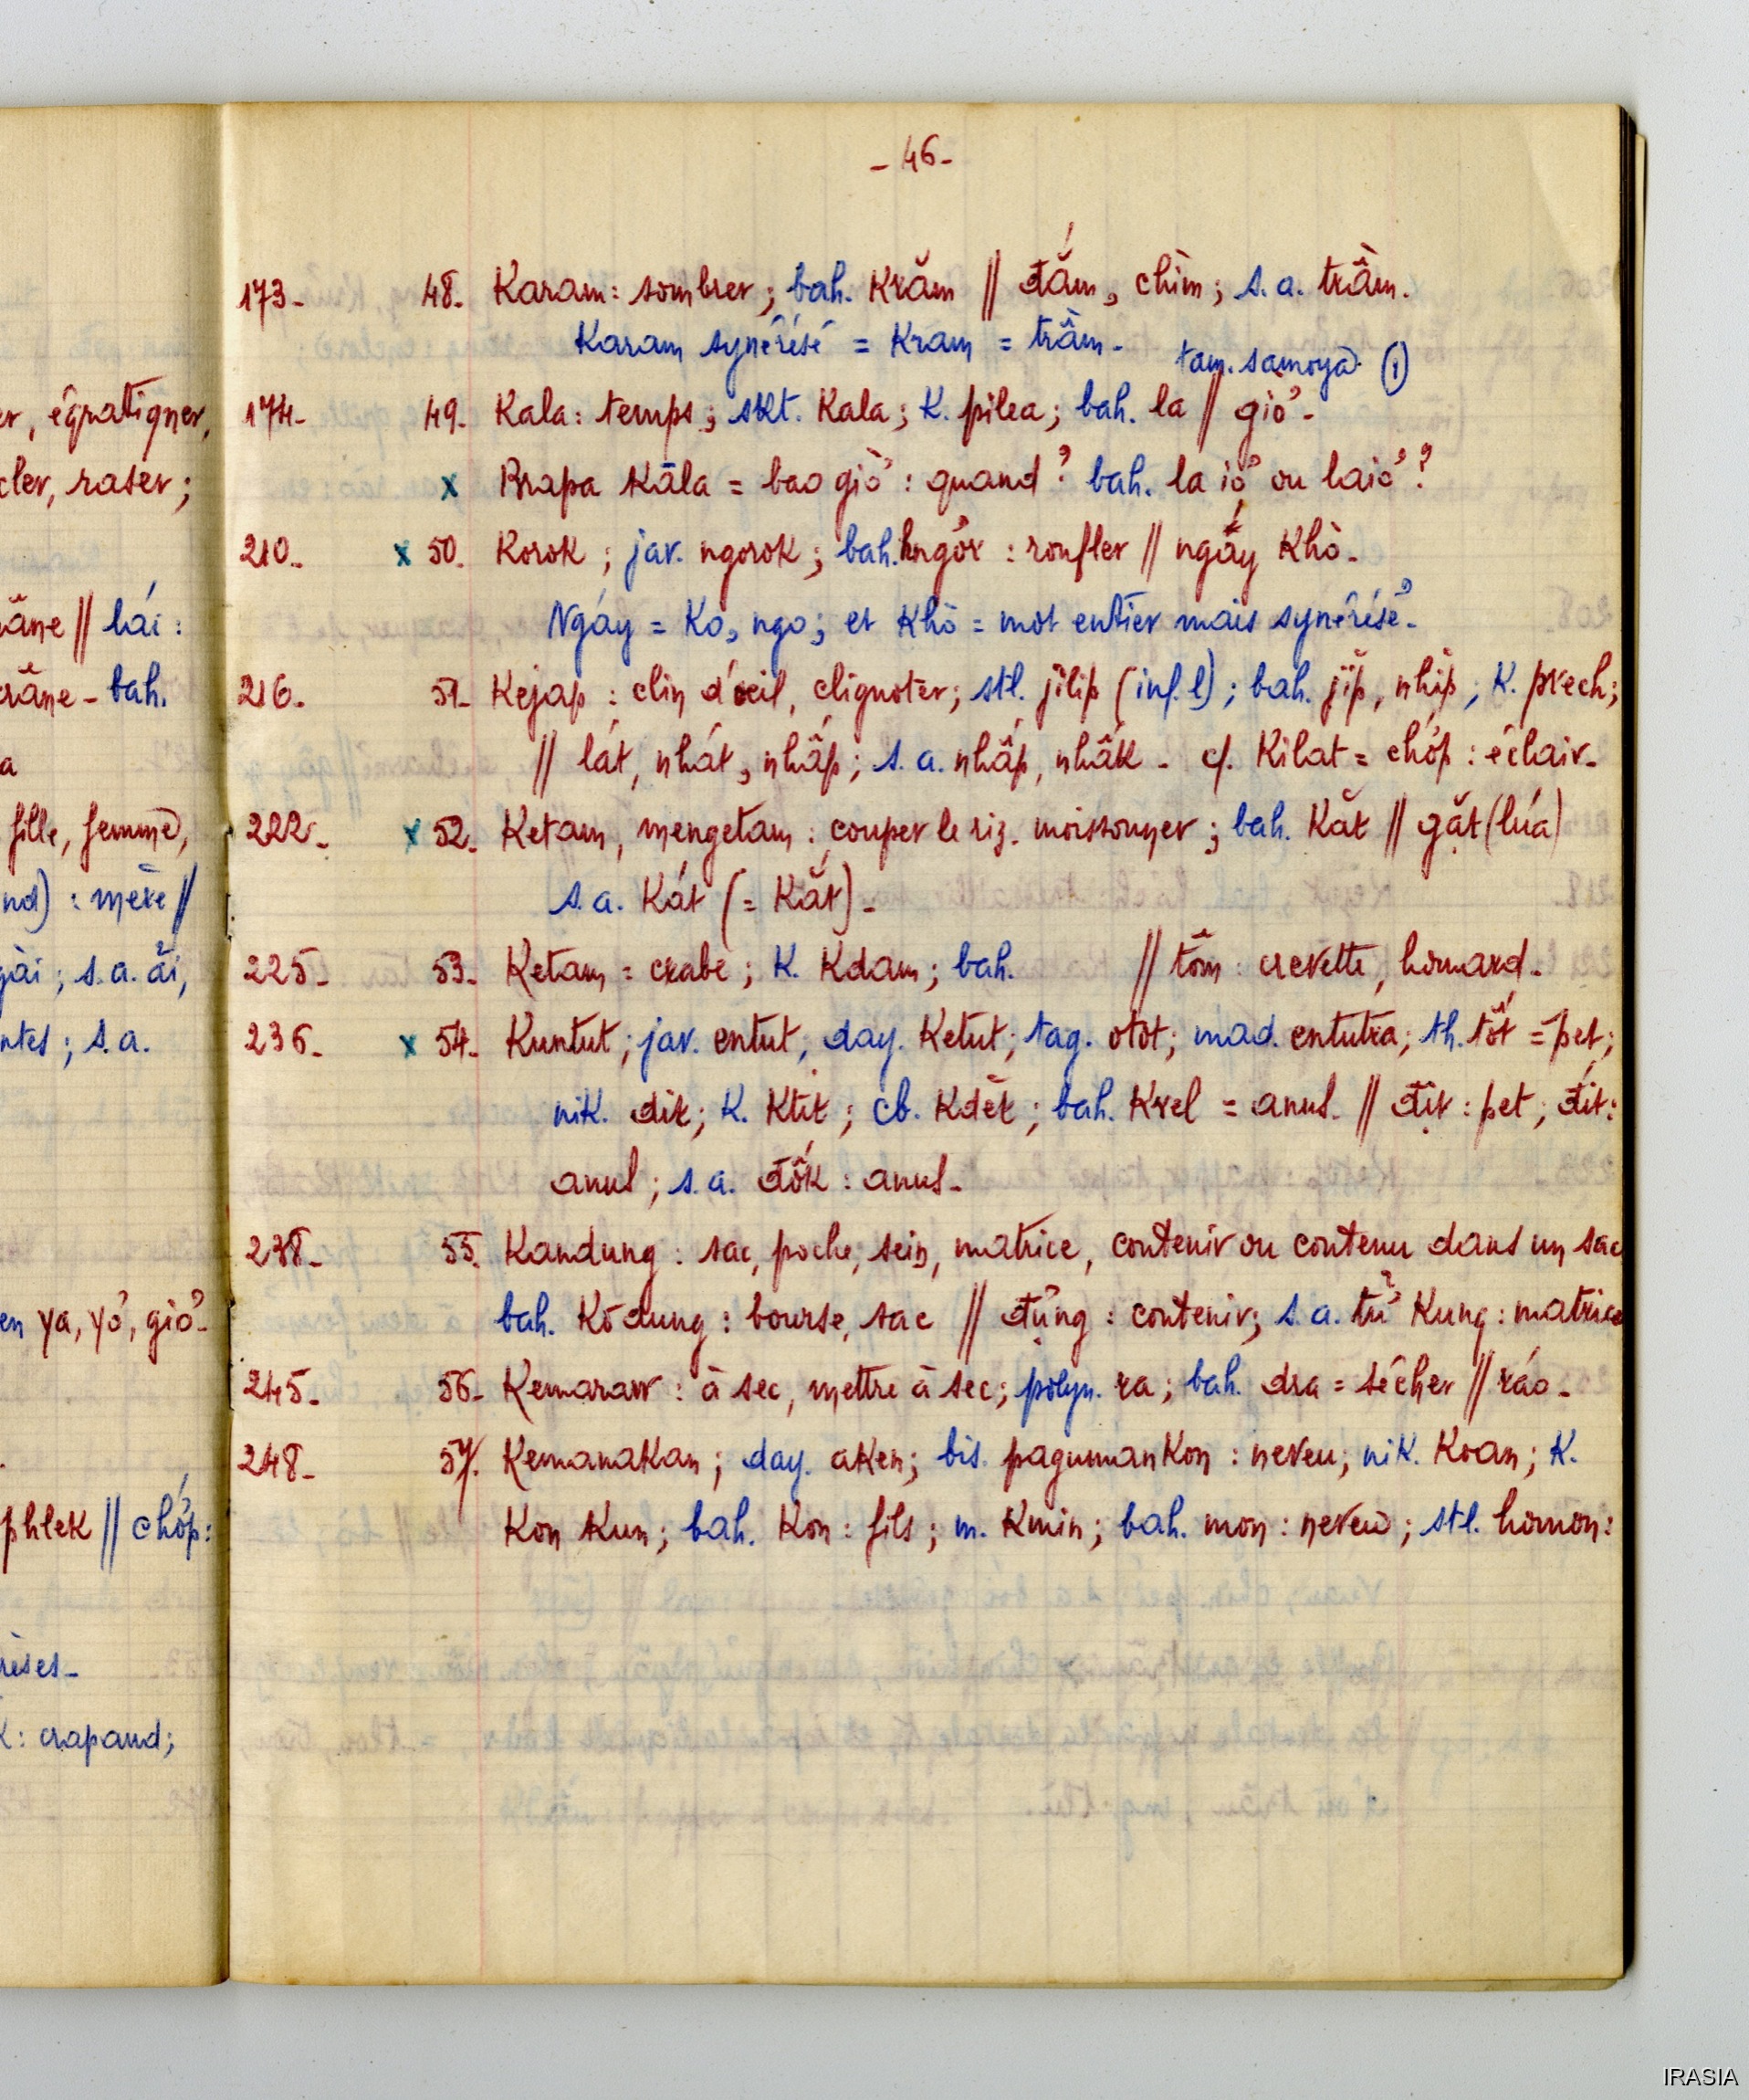 - 46 -
173- 48. Karam: sombrer; bah. Krăm // đắm, chìm; s.a. trầm.
Karam synérésé = Kram = trầm-
tam. samoya (1)
174- 49. Kala: temps; skt. Kala; K. pilea; bah. la // giờ-
x Brapa Kāla = bao giờ: quand? bah. la iơ ou laiơ?
210- x 50. Korok; jav. ngorok; bah. hngơr: ronfler // ngáy Khò-
Ngáy = Ko, ngo; et Khò = mot entier mais synérésé-
216- 51- Kejap: clin d'œil, clignoter; stl. jilip (inf. l); bah. jĭp, nhĭp; K. prech;
// lát, nhát, nhấp; s.a. nhấp, nhấk - cf. Kilat = chớp: éclair-
222- x 52. Ketam, mengetam: couper le riz. moissonner; bah. Kăt // gặt (lúa)
s.a. Kát (= Kắt)-
225- 53- Ketam = crabe; K. Kdam; bah. // tôm: crevette, homard-
236- x 54- Kuntut; jav. entut; day. Ketut; tag. otot; mad. entutra; th. tốt = pet;
nik. dit; K. Ktit; cb. Kdĕt; bah. Krel = anus- // địt: pet; đít:
anus; s.a. đốk: anus-
238- 55. Kandung: sac, poche, sein, matrice, contenir ou contenu dans un sac
bah. Kŏdung: bourse, sac // đựng: contenir; s.a. tử Kung: matrice
245- 56- Kemaraw: à sec, mettre à sec; polyn. ra; bah. dra = sécher // ráo-
248- 57. KemanaKan; day. aKen; bis. pagumanKon: neveu; niK. Koan; K.
Kon Kun; bah. Kon: fils; m. Kmin; bah. mon: neveu; stl. homon:
er, égratigner,
cler, raser;
âne // lái:
râne - bah.
a
fille, femme,
nd): mère //
gài; s.a. ăi,
ntes; s.a.
en ya, yơ, giờ-
phlek // chớp:
rèses-
K: crapaud;
IRASIA